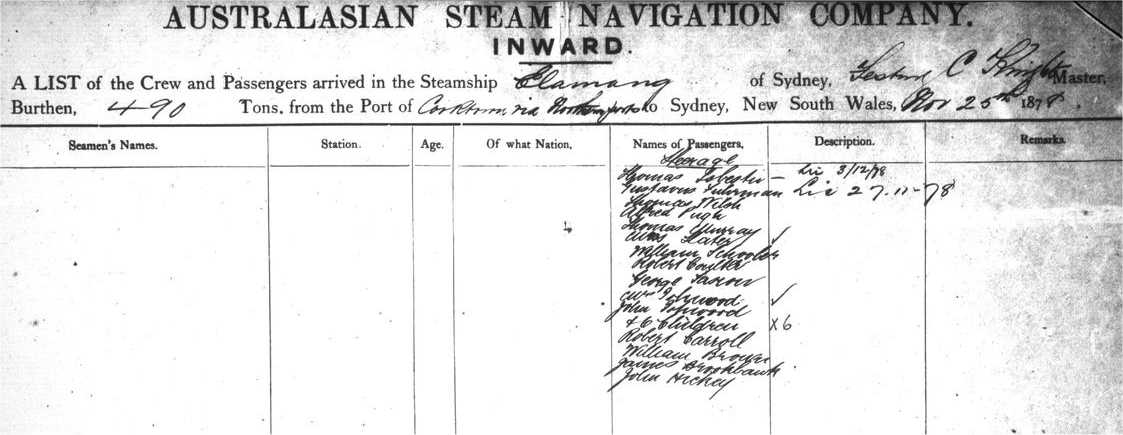 AUSTRALASIAN STEAM NAVIGATION COMPANY.
INWARD.
A LIST of the Crew and Passengers arrived in the Steamship Elamang of Sydney, C Knight Master,
Burthen, 490 Tons, from the Port of Cooktown via Northern ports to Sydney, New South Wales, Nov 25th 1878.
Seamen's Names. Station. Age. Of what Nation, Names of Passengers, Description. Remarks.
Steerage
Thomas Silvester — Lic 3/12/78
Gustavus Fuhrman Lic 27.11-78
Thomas Welsh
Alfred Pugh
Thomas Murray
Mrs Slater ✓
William Schooler
Robert Coulter
George
Mrs Topwood ✓
John Topwood
& 6 Children x6
Robert Carroll
William Brown
James Brookbank
John Hickey